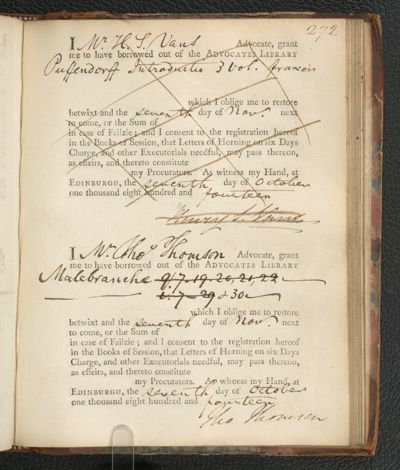 272.
I Mr. H. S. Vans Advocate, grant
me to have borrowed out of the ADVOCATES LIBRARY
Puffendorff Introductio 3 vol. francois
which I oblige me to restore
betwixt and the seventh day of Nov. next
to come, or the Sum of
in case of Failzie; and I consent to the registration hereof
in the Books of Session, that Letters of Horning on six Days
Charge, and other Executorials needful, may pass thereon,
as effeirs, and thereto constitute
my Procurators. As witness my Hand, at
EDINBURGH, the seventh day of October
one thousand eight hundred and fourteen
I Mr. Tho. Thomson Advocate, grant
me to have borrowed out of the ADVOCATES LIBRARY
Malebranche
& 30
which I oblige me to restore
betwixt and the seventh day of Nov. next
to come, or the Sum of
in case of Failzie; and I consent to the registration hereof
in the Books of Session, that Letters of Horning on six Days
Charge, and other Executorials needful, may pass thereon,
as effeirs, and thereto constitute
my Procurators. As witness my Hand, at
EDINBURGH, the seventh day of October
one thousand eight hundred and fourteen
Tho Thomson